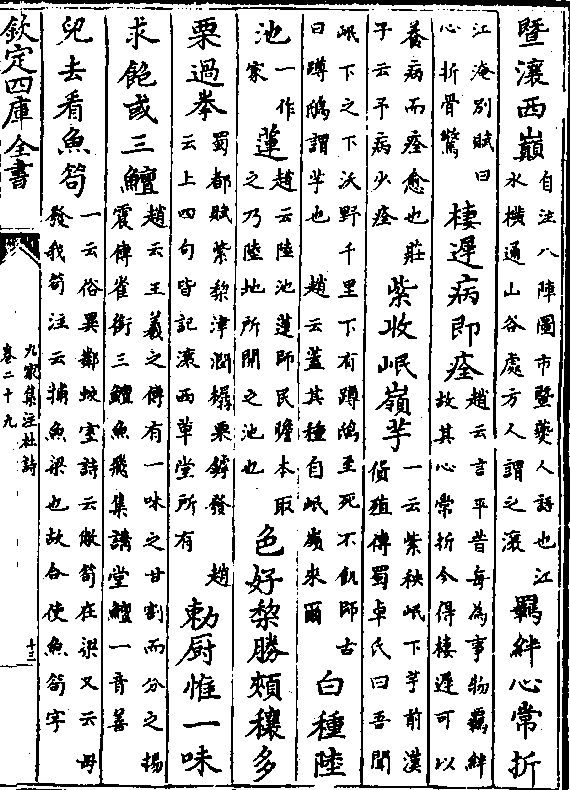 暨瀼西巔自注八陣圖市暨夔人語也江水橫通山谷處方人謂之瀼羈絆心常折
江淹別賦曰心折骨驚棲遲病即痊趙云言平昔每為事物覊絆故其心常折今得棲遲可以
養病而痊愈也莊子云予病少痊紫收岷嶺芋一云紫秧岷下芋前漢貨殖傳蜀卓氏曰吾聞
岷下之下沃野千里下有蹲鴟至死不飢師古曰蹲鴟謂芋也 趙云蓋其種自岷嶺來爾白種陸
池一作家蓮趙云陸池蓮師民瞻本取之乃陸地所開之池也色好棃勝頰穰多
栗過拳蜀都賦紫棃津潤榛栗罅發 趙云上四句皆記瀼西草堂所有勅厨惟一味
求飽或三鱣趙云王羲之傳有一味之甘割而分之楊震傳雀銜三鱣魚飛集講堂鱣一音善
兒去看魚笱一云俗異鄰蛟室詩云敝笱在梁又云毋發我笱注云捕魚梁也故合使魚笱字
欽定四庫全書
九家集注杜詩
卷二十九
十三